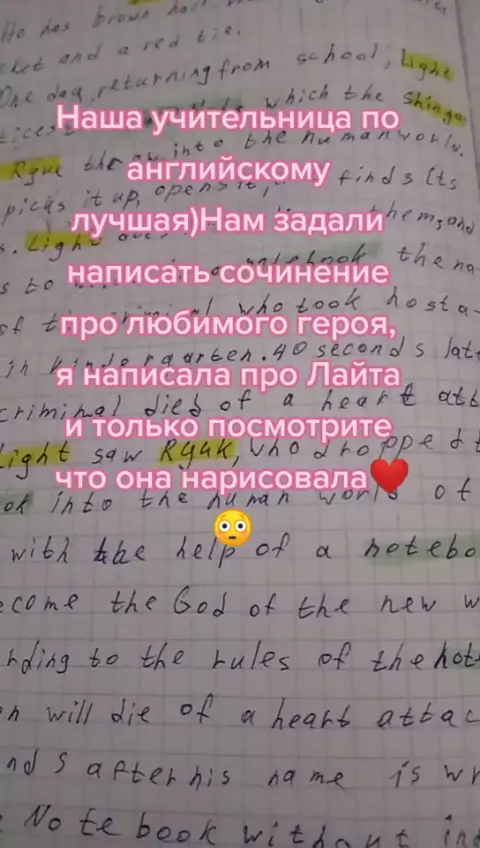 He has brown hair
ket and a red tie.
One day, returning from school, Light
which the Shiniga
Наша учительница по
Ryuk into the human world.
английскому
picks it up, opens it, finds its
лучшая)Нам задали
them, and
Light notebook the na
написать сочинение
s to
who took hosta-
про любимого героя,
in kindergarten. 40 seconds late
я написала про Лайта
criminal died of a heart att
и только посмотрите
ight saw Ryuk, who dropped t
что она нарисовала❤️
ok into the human world of
😳
with the help of a notebo
ecome the God of the new w
rding to the rules of the not
n will die of a heart attac
nd s after his name is wr
Note book without in